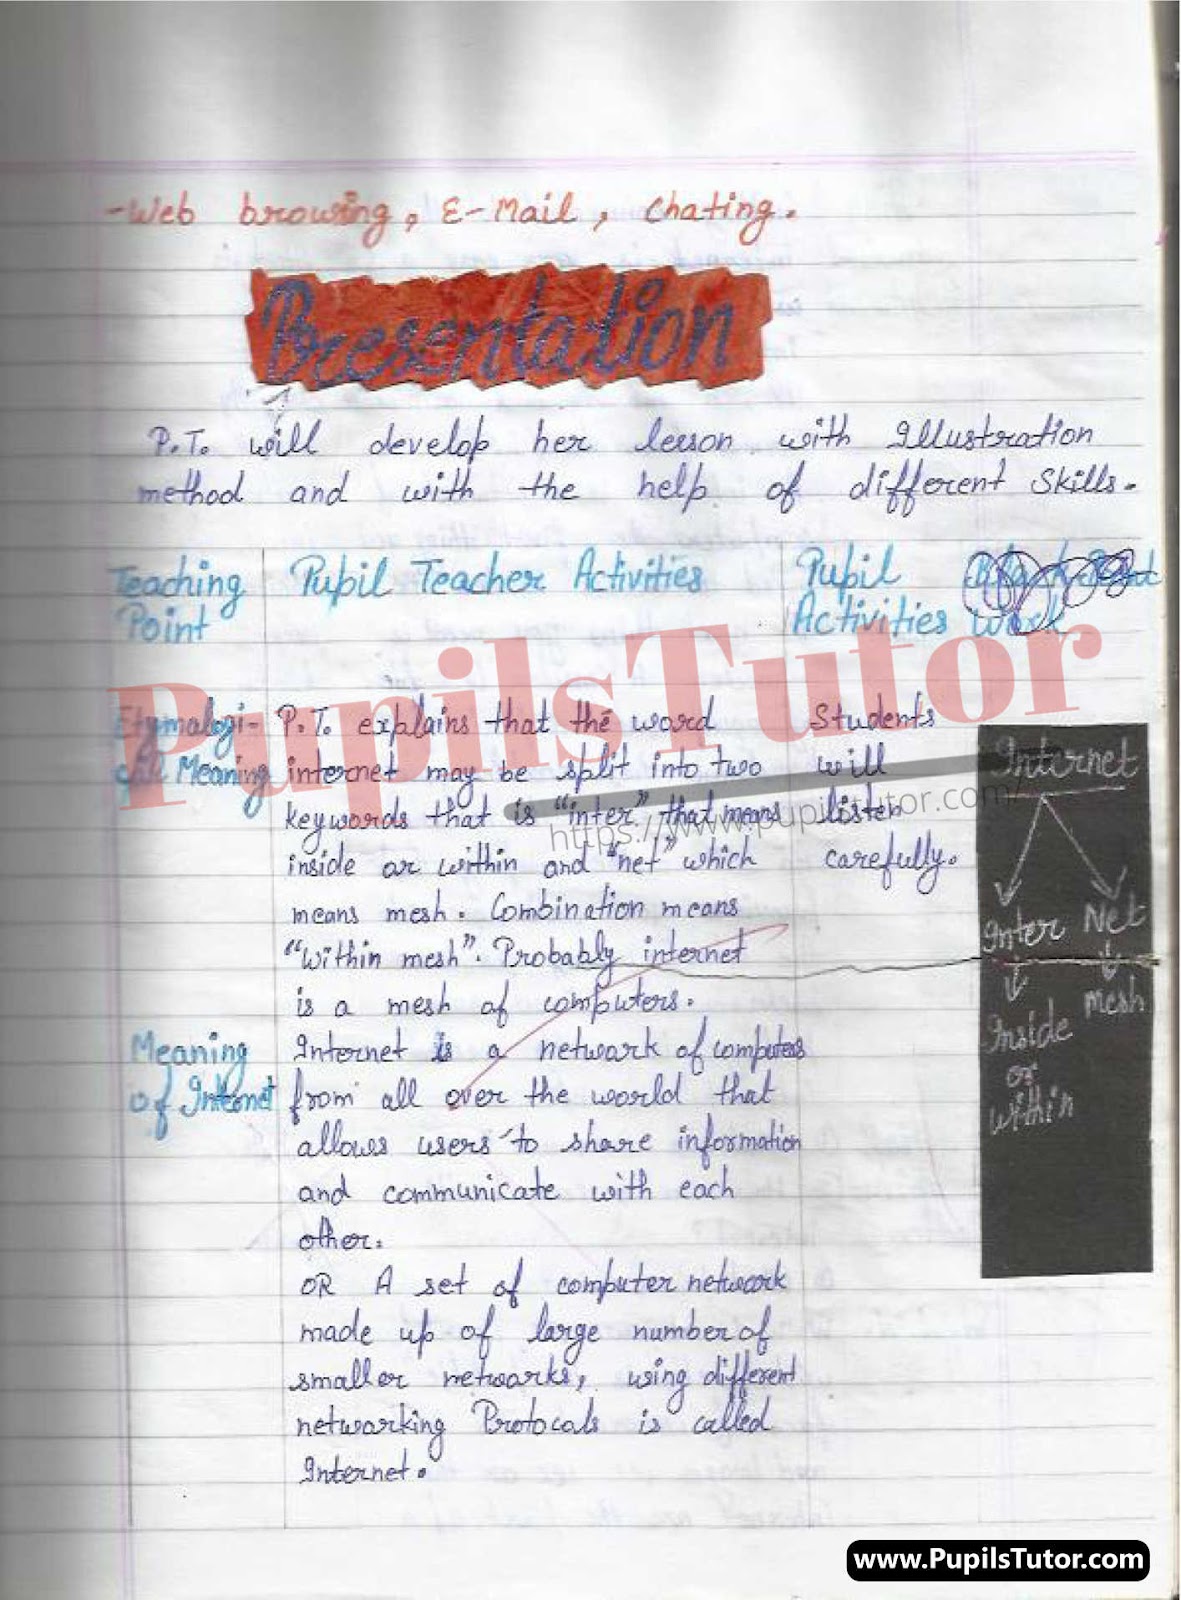 -Web browsing, E-Mail, Chating.
Presentation
P.T. will develop her lesson with Illustration
method and with the help of different Skills.
Teaching Point
Pupil Teacher Activities
Pupil Activities
Work
PupilsTutor
https://www.pupilstutor.com/
Etymalogi-
Meaning
P.T. explains that the word
internet may be split into two
keywords that is "inter" that means
inside or within and "net" which
means mesh. Combination means
"within mesh". Probably internet
is a mesh of computers.
Students
will
listen
carefully.
Internet
Inter Net
Inside
or
within
mesh
Meaning
of Internet
Internet is a network of computers
from all over the world that
allows users to share information
and communicate with each
other.
OR A set of computer network
made up of large number of
smaller networks, using different
networking Protocals is called
Internet.
www.PupilsTutor.com